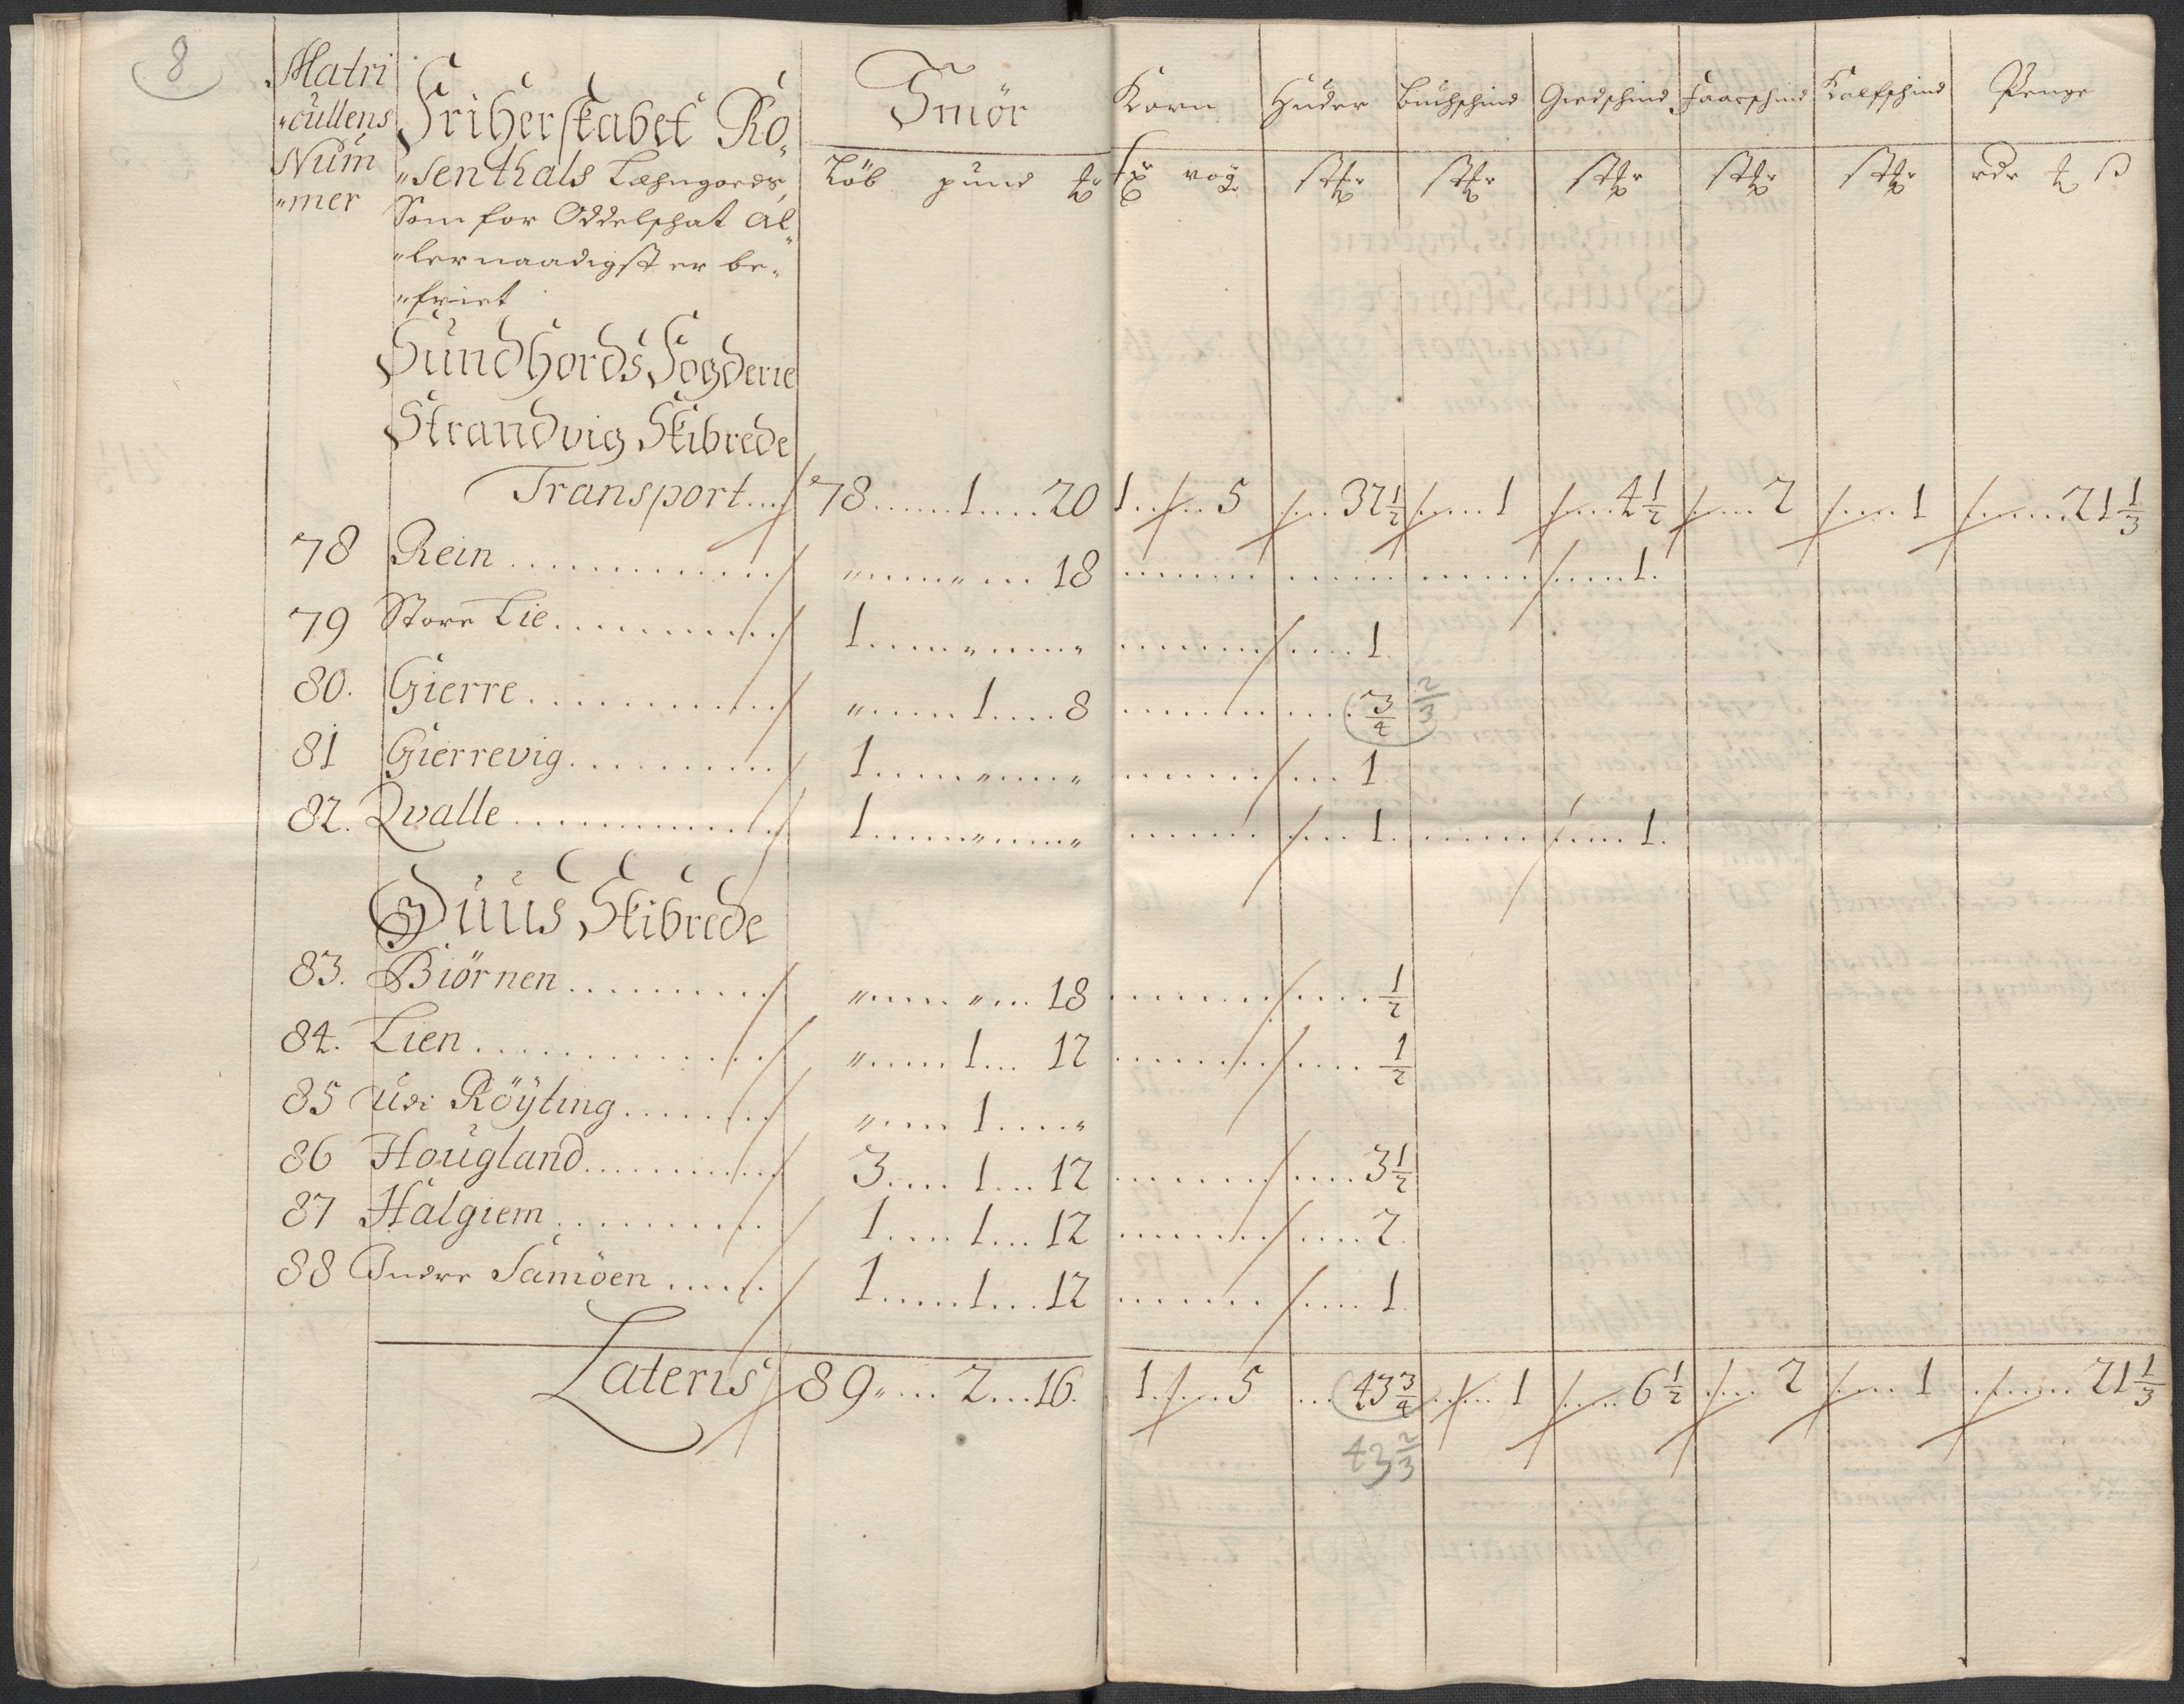 8
Matri
"cullens
Num
"mer
Friherskabet Ro„
"senthals Læhngoeds,
Som for Oddelschat Al„
"lernaadigst er be„
"friet
Smör
Löb pund
Korn Huder Buchschind Giedschind Faarschind Kalfschind Penge
vog
Sundhords Fogderie
Strandvig Skibrede
Transport.... 78......1....20 1......5 37 1/2 1 4 1/2 2 1 21 1/3
78 Rein............ "......"...18 1.
79 Store Lie........... 1......"......" 1
80. Gierre............ "......1....8 3/4 2/3
81 Gierrevig.......... 1......"......" 1
82. Qvalle............. 1......"......" 1. 1.
Öuus Skibrede
83. Biörnen.......... "......"...18 1/2
84. Lien.............. "......1...12 1/2
85 Udi Röyting........ "....1....."
86 Hougland.......... 3....1...12 3 1/2
87 Halgiem.......... 1....1...12 2.
88 Indre Samöen...... 1.....1...12 1.
Lateris 89"...2...16. 1.....5 43 3/4 1 6 1/2 2 1 21 1/3
43 2/3